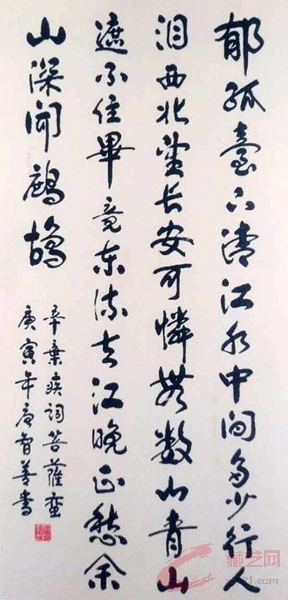 郁孤臺下清江水中间多少行人
泪西北望长安可憐無数山青山
遮不住畢竟东流去江晚正愁余
山深闻鹧鸪
辛棄疾词菩薩蛮
庚寅年唐智善书
藏艺网